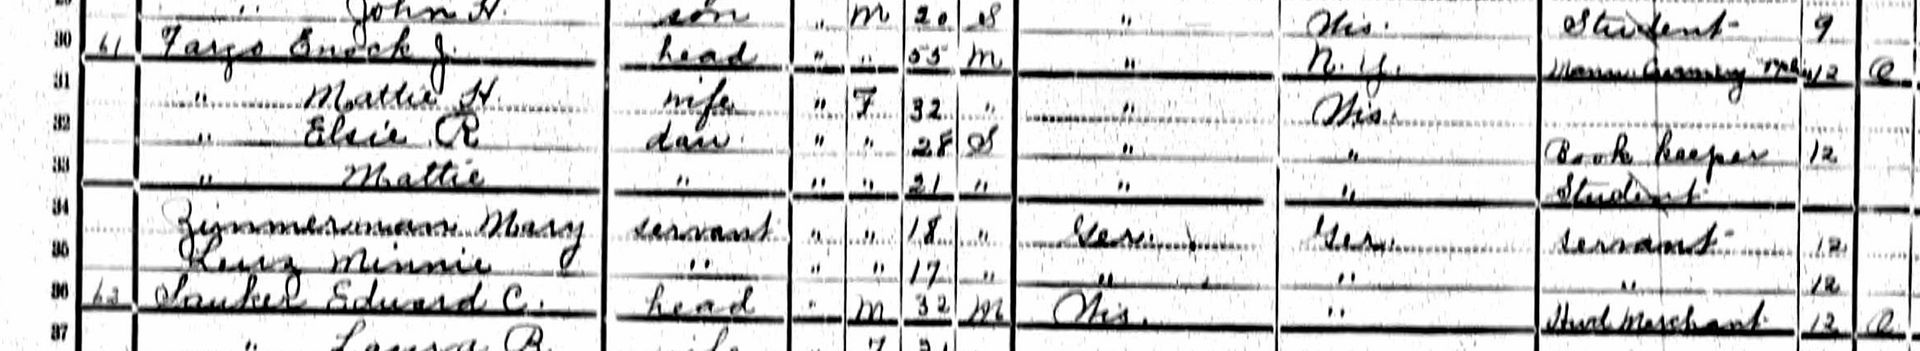 " John H. son " M 20 S " Wis. Student 9
30 61 Fargo Enock J. head " " 55 M " N. Y. 12 O
31 " Mattie H. wife " F 32 " " Wis.
32 " Elsie R dau " " 28 S " " Book keeper 12
33 " Mattie " " " 21 " " " Student
34 Zimmerman Mary servant " " 18 " Ger. Ger. servant 12
35 Minnie " " " 17 " " " " 12
36 Edward C. head " M 32 M Wis. " Merchant 12 O
37 " B. wife F 31